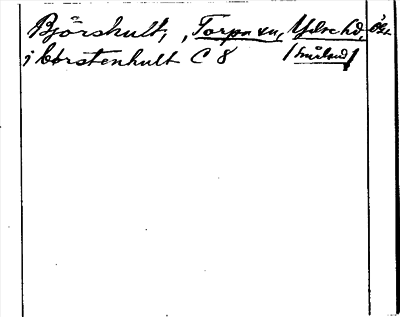 Björshult, , Torpa sn, Ydre hd, Ög.
i Corstenhult C 8 (Småland)